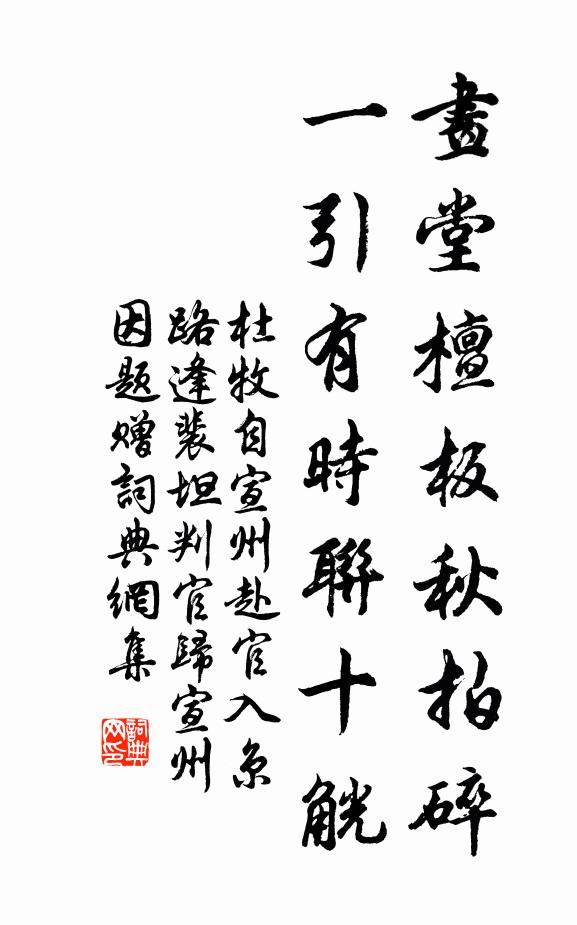 畫堂檀板秋拍碎
一引有時聯十觥
杜牧自宣州赴官入京
路逢裴坦判官歸宣州
因題贈詞典網集
詞典网印